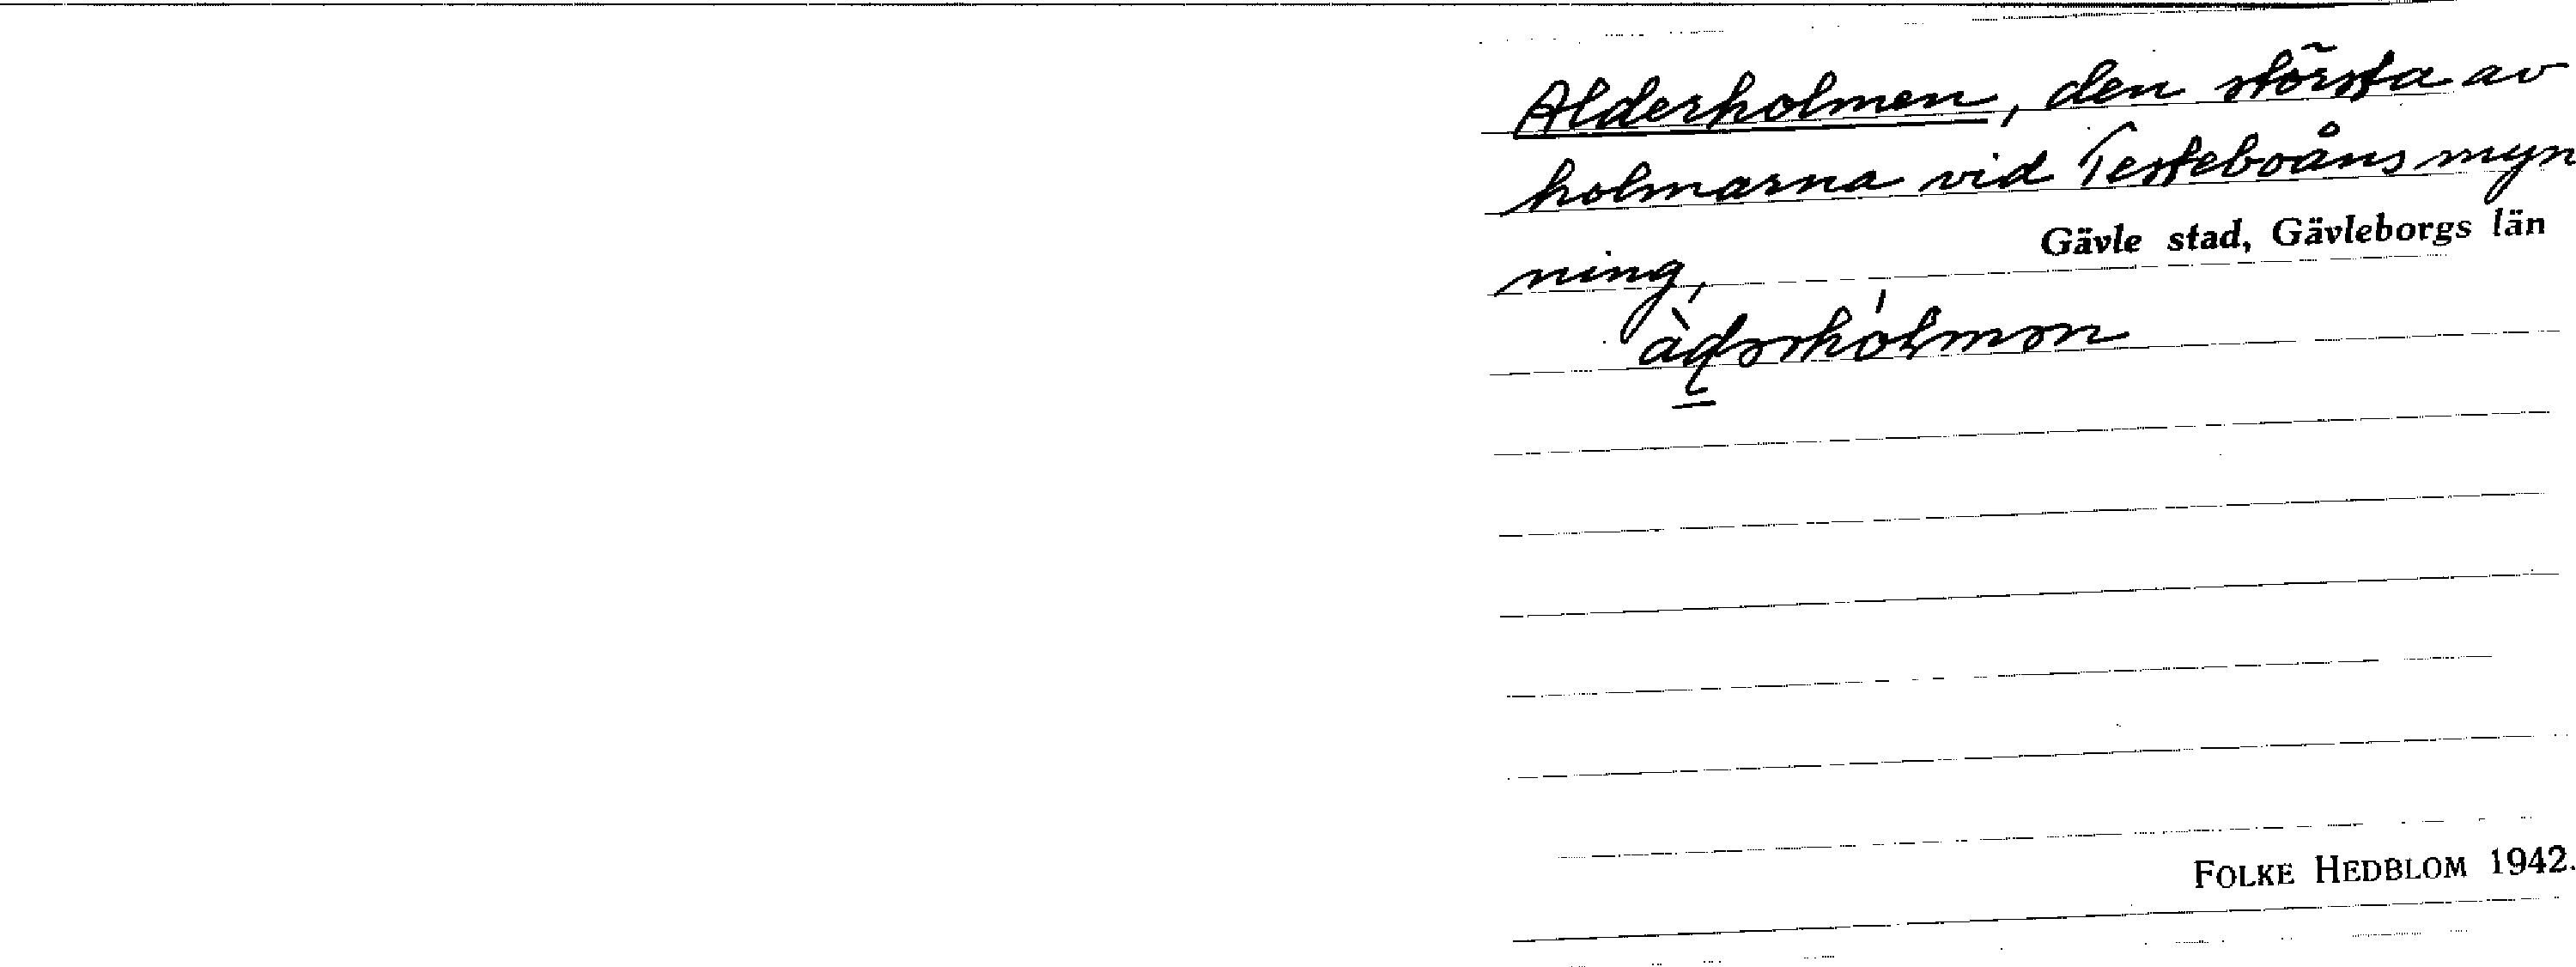 Alderholmen, den största av
holmarna vid Testeboåns myn
Gävle stad, Gävleborgs län
ning,
FOLKE HEDBLOM 1942.